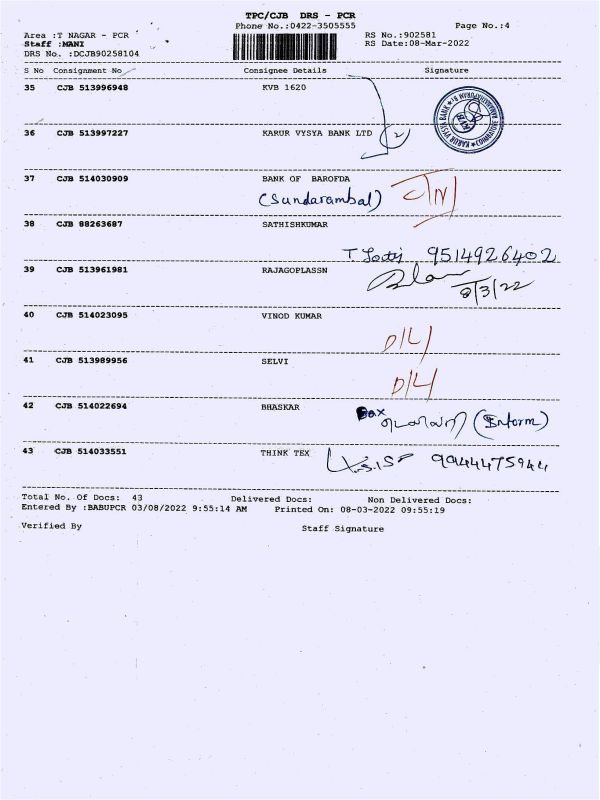 TPC/CJB DRS - PCR
Phone No.:0422-3505555 Page No.:4
Area :T NAGAR - PCR RS No.:902581
Staff :MANI RS Date:08-Mar-2022
DRS No. :DCJB90258104
S No Consignment No Consignee Details Signature
35 CJB 513996948 KVB 1620
36 CJB 513997227 KARUR VYSYA BANK LTD 2
37 CJB 514030909 BANK OF BAROFDA
(Sundarambal)
38 CJB 88263687 SATHISHKUMAR
9514926402
39 CJB 513961981 RAJAGOPLASSN
8/3/22
40 CJB 514023095 VINOD KUMAR
D/L
41 CJB 513989956 SELVI
D/L
42 CJB 514022694 BHASKAR
Box
(Inform)
43 CJB 514033551 THINK TEX 9944475944
Total No. Of Docs: 43 Delivered Docs: Non Delivered Docs:
Entered By :BABUPCR 03/08/2022 9:55:14 AM Printed On: 08-03-2022 09:55:19
Verified By Staff Signature